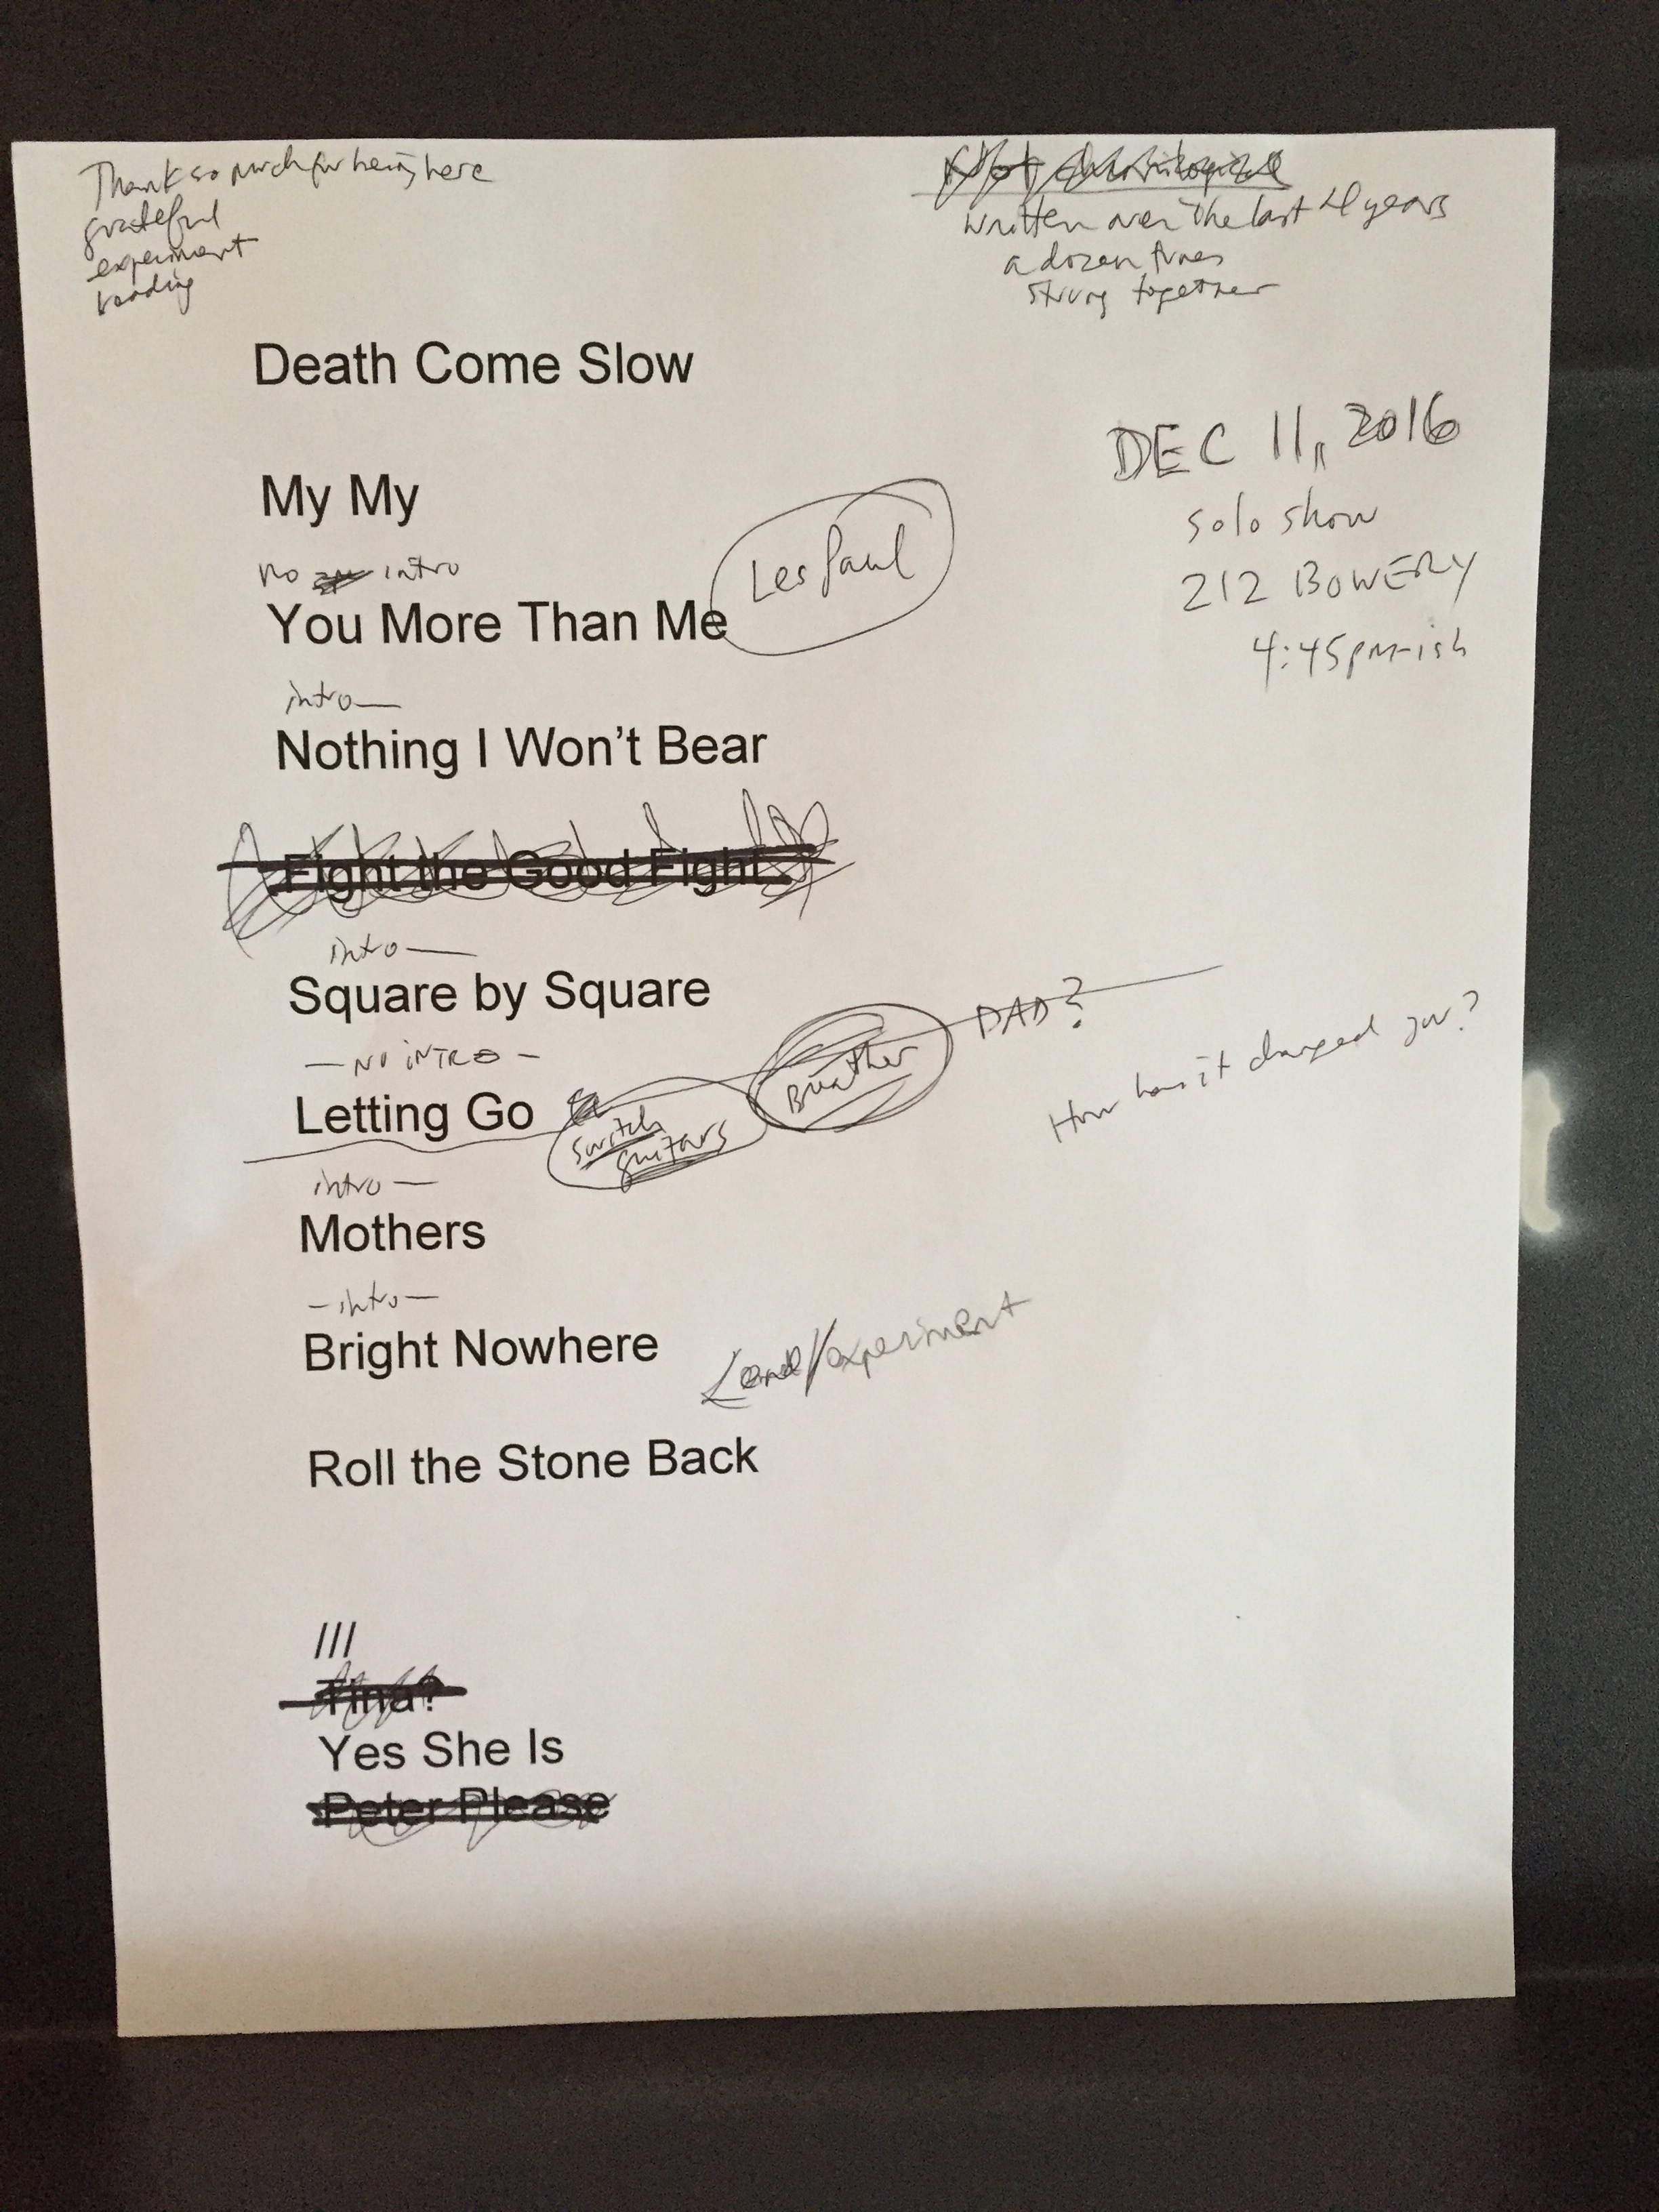 Thanks so much for being here
grateful
experiment
reading
Not
written over the last 4 years
a dozen tunes
strung together
Death Come Slow
DEC 11, 2016
solo show
212 BOWERY
4:45pm-ish
My My
Les Paul
no intro
You More Than Me
intro
Nothing I Won't Bear
Fight the Good Fight
intro
Square by Square
- NO INTRO -
DAD?
How has it changed you?
Breather
Letting Go
switch
guitars
intro -
Mothers
- intro -
Bright Nowhere
/experiment
Roll the Stone Back
///
Tina?
Yes She Is
Peter Please